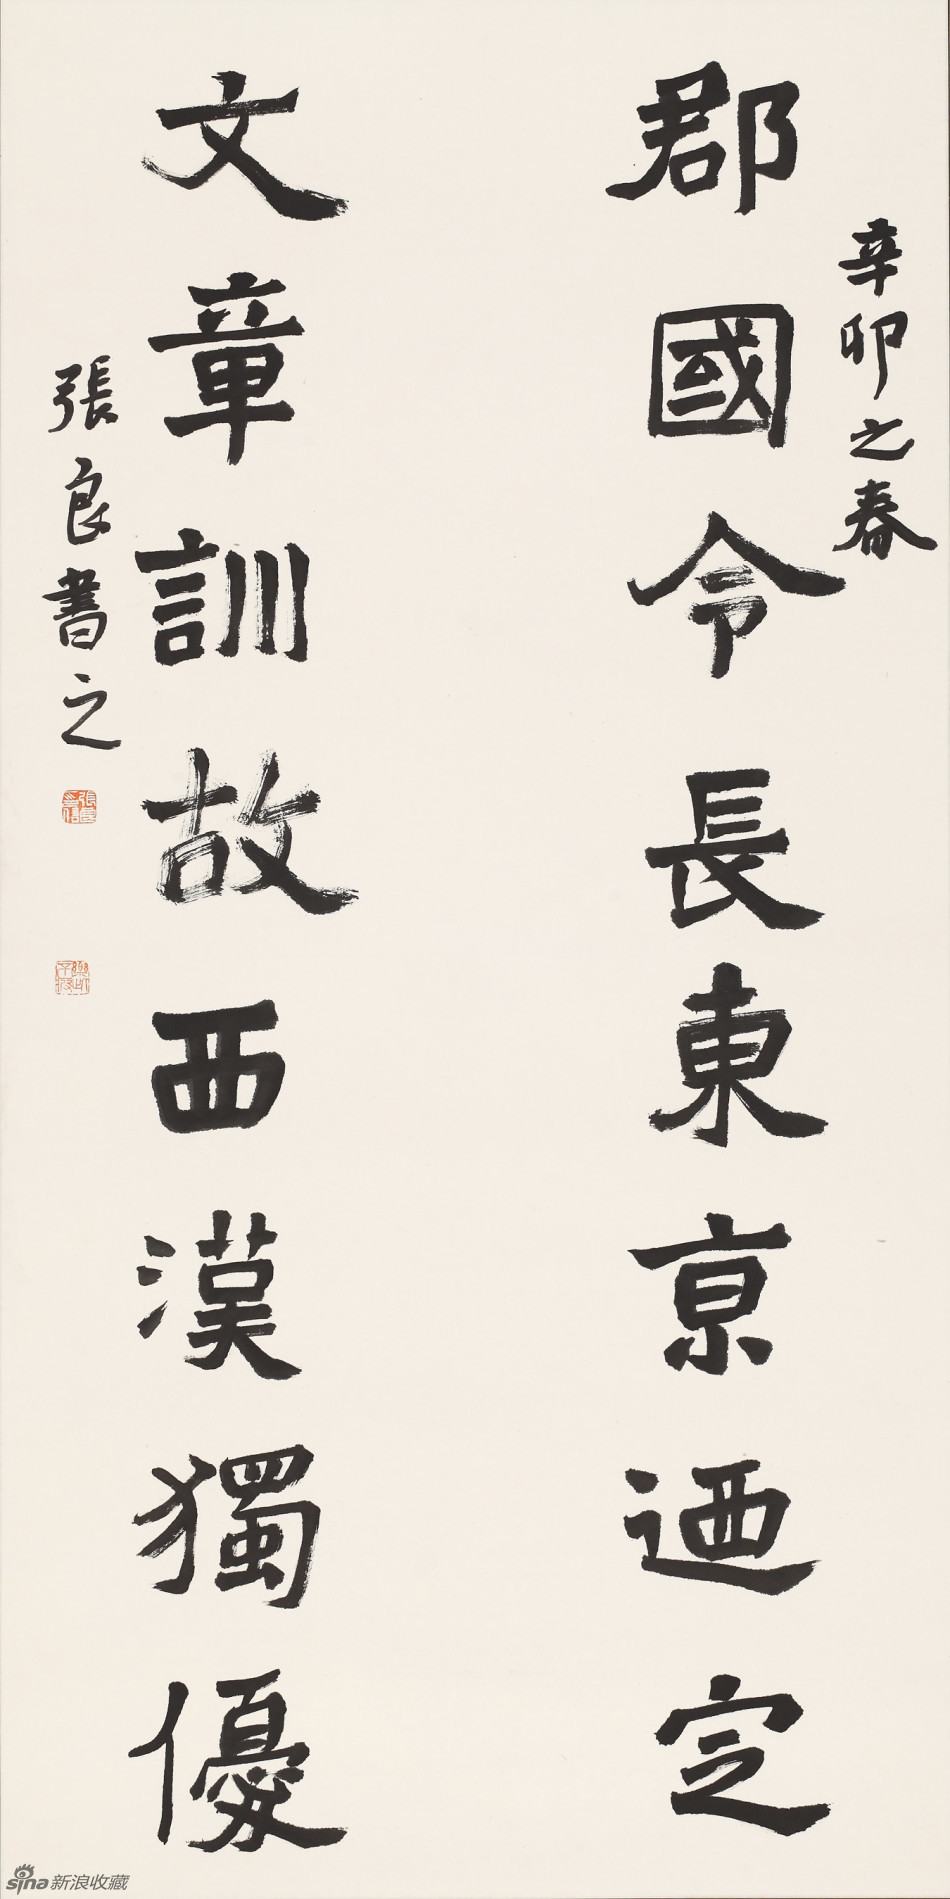 辛卯之春
郡國令長東京迺定
文章訓故西漢獨優
張良書之
sina新浪收藏